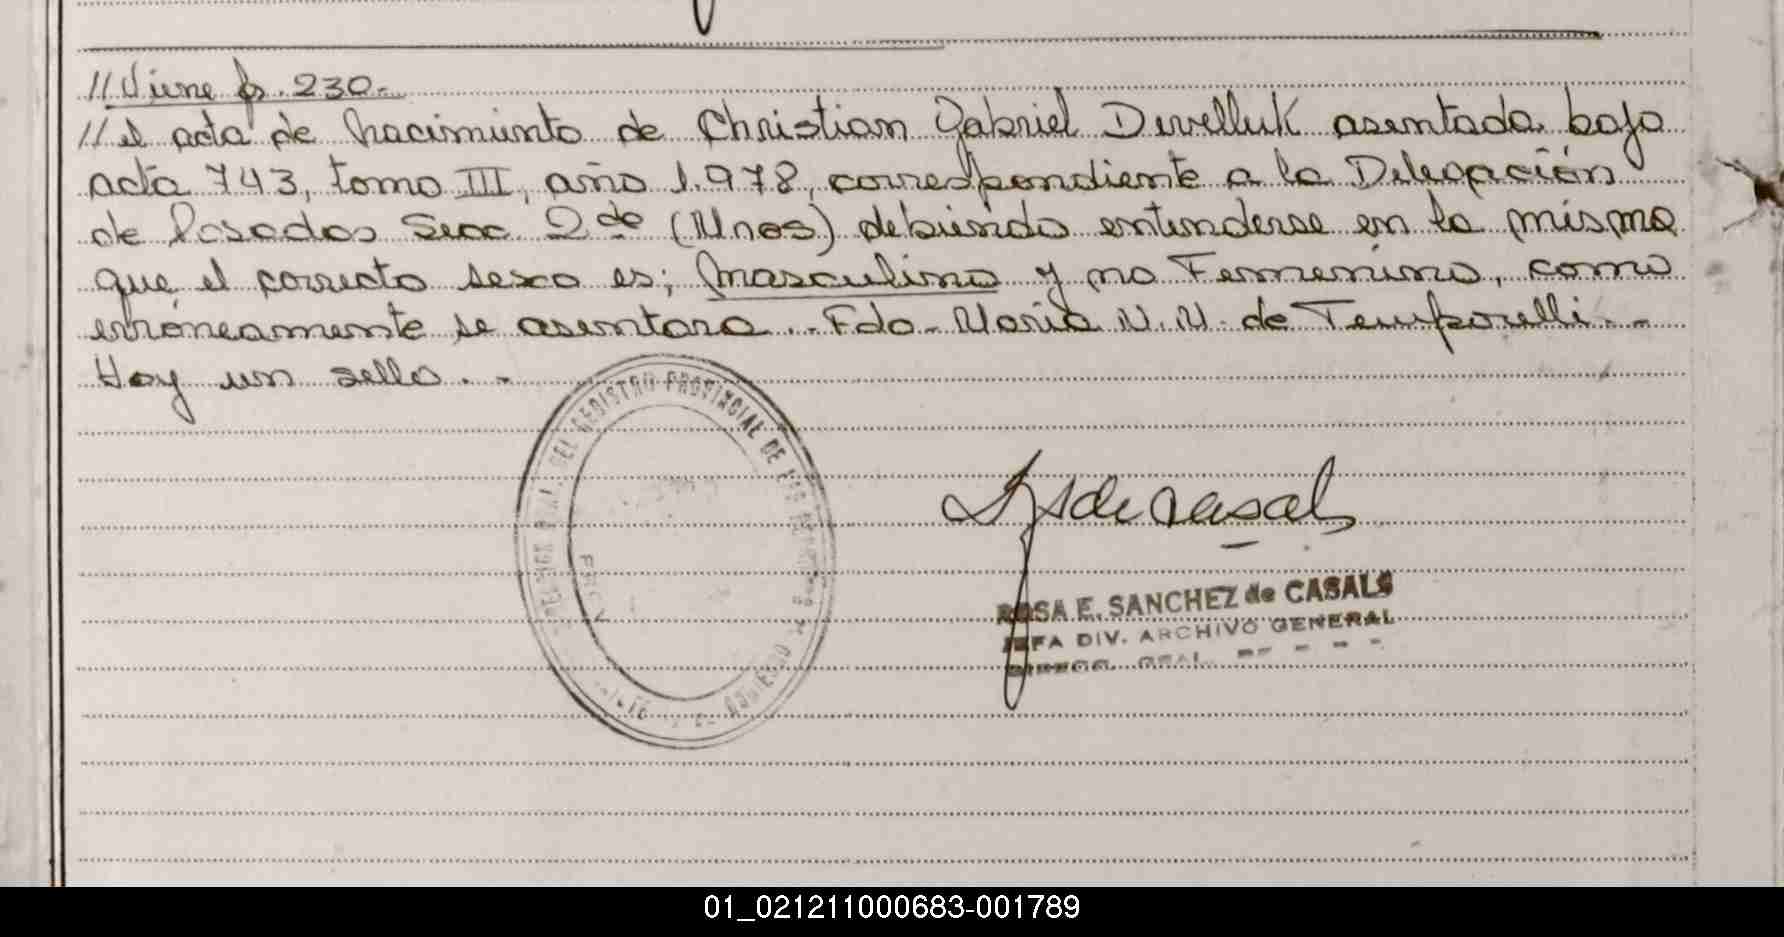 // Viene fs. 230.-
// el acta de nacimiento de Christian Gabriel Dewelluk asentada bajo
acta 743, tomo III, año 1.978, correspondiente a la Delegación
de Posadas Secc 2da (Mnes) debiendo entenderse en la misma
que el correcto sexo es; masculino y no Femenino, como
erróneamente se asentara.- Fdo- María N. N. de Temporelli.-
Hoy un sello.-
DEL REGISTRO PROVINCIAL DE LAS PERSONAS
de Casals
ROSA E. SANCHEZ de CASALS
JEFA DIV. ARCHIVO GENERAL
DIRECC. GRAL.
01_021211000683-001789